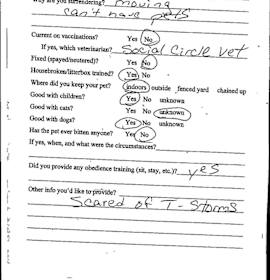 Why are you surrendering? moving
can't have pets
Current on vaccinations? Yes No
If yes, which veterinarian? Social Circle vet
Fixed (spayed/neutered)? Yes No
Housebroken/litterbox trained? Yes No
Where did you keep your pet? indoors outside fenced yard chained up
Good with children? Yes No unknown
Good with cats? Yes No unknown
Good with dogs? Yes No unknown
Has the pet ever bitten anyone? Yes No
If yes, when, and what were the circumstances?
Did you provide any obedience training (sit, stay, etc.)? yes
Other info you'd like to provide?
Scared of T-Storms